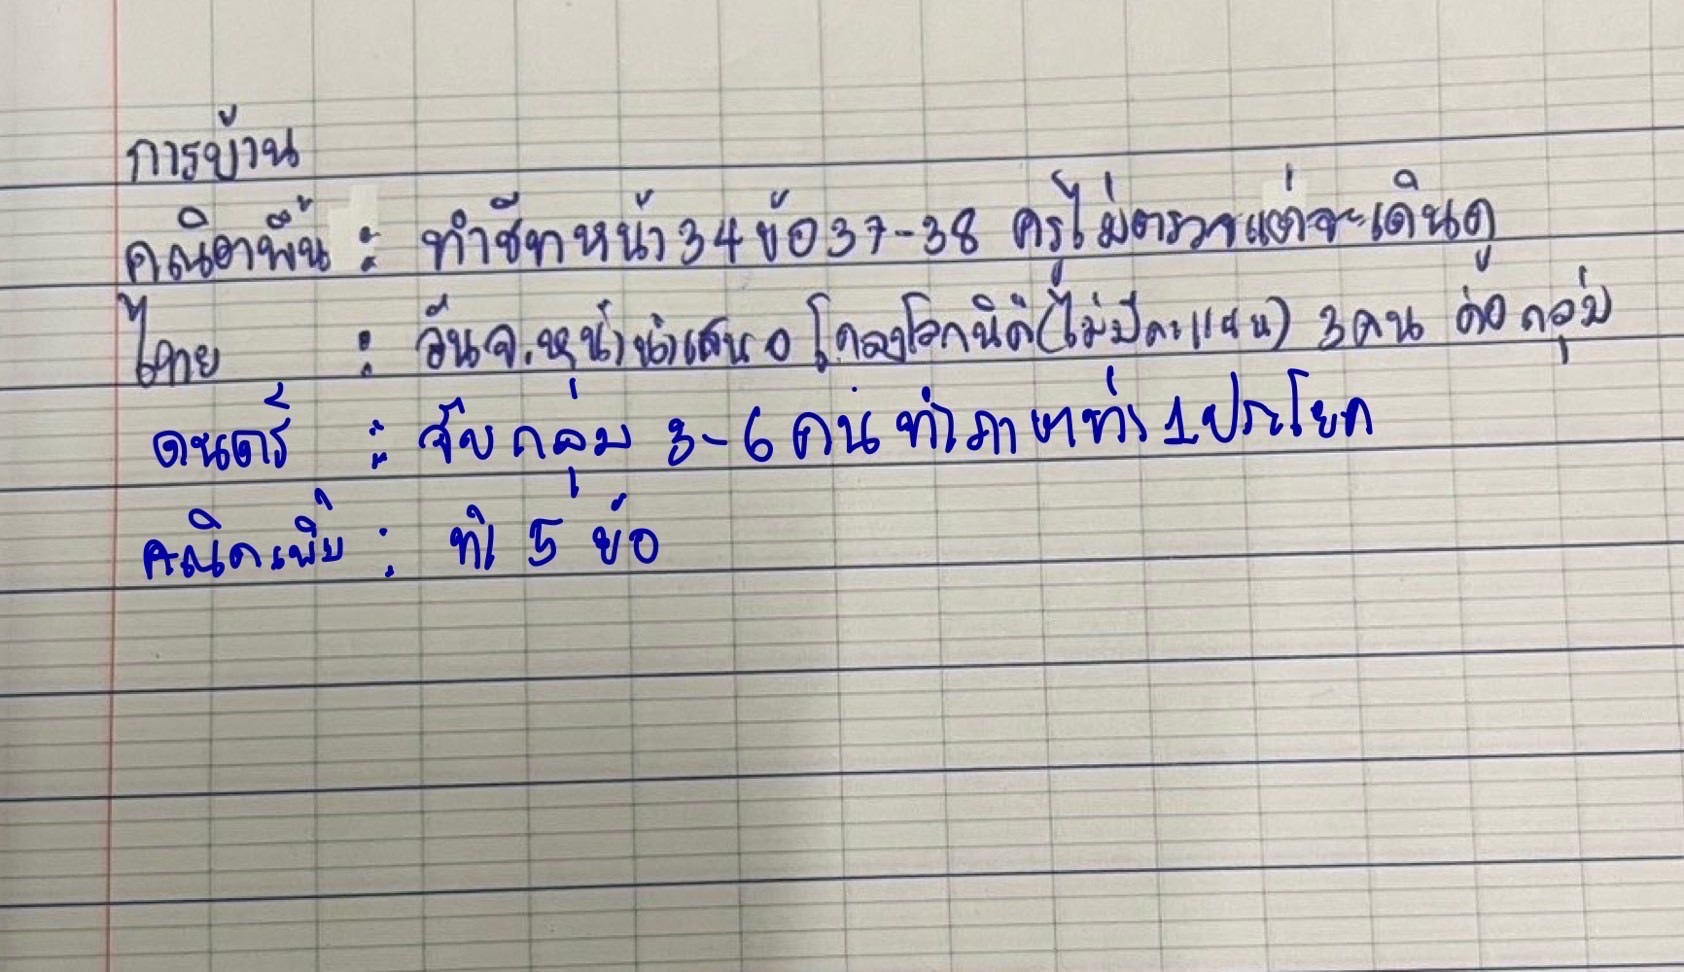 การบ้าน
คณิตพื้น : ทำชีทหน้า 34 ข้อ 37-38 ครูไม่ตรวจแต่จะเดินดู
ไทย : วันจ.หน้านำเสนอโคลงโลกนิติ (ไม่มีคะแนน) 3 คน ต่อ กลุ่ม
ดนตรี : จับกลุ่ม 3-6 คน ทำภาษาท่า 1 ประโยค
คณิตเพิ่ม : ทำ 5 ข้อ